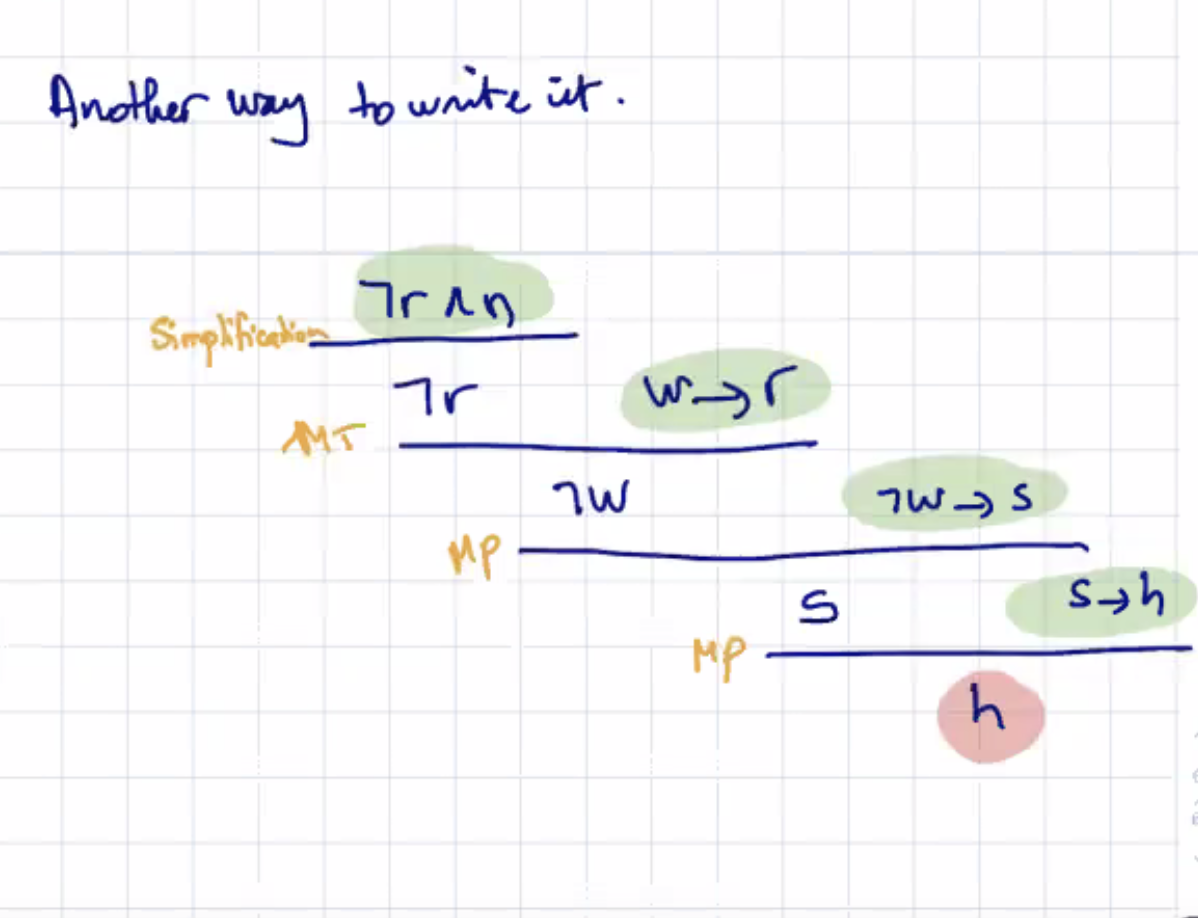 Another way to write it.
¬r ∧ n
Simplification
¬r w → r
MT
¬w ¬w → s
MP
s s → h
MP
h